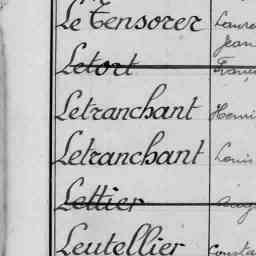 Le Tensorer Laure
Jean
Letort Franç
Letranchant Henri
Letranchant Louis
Lettier Aug
Leutellier Consta